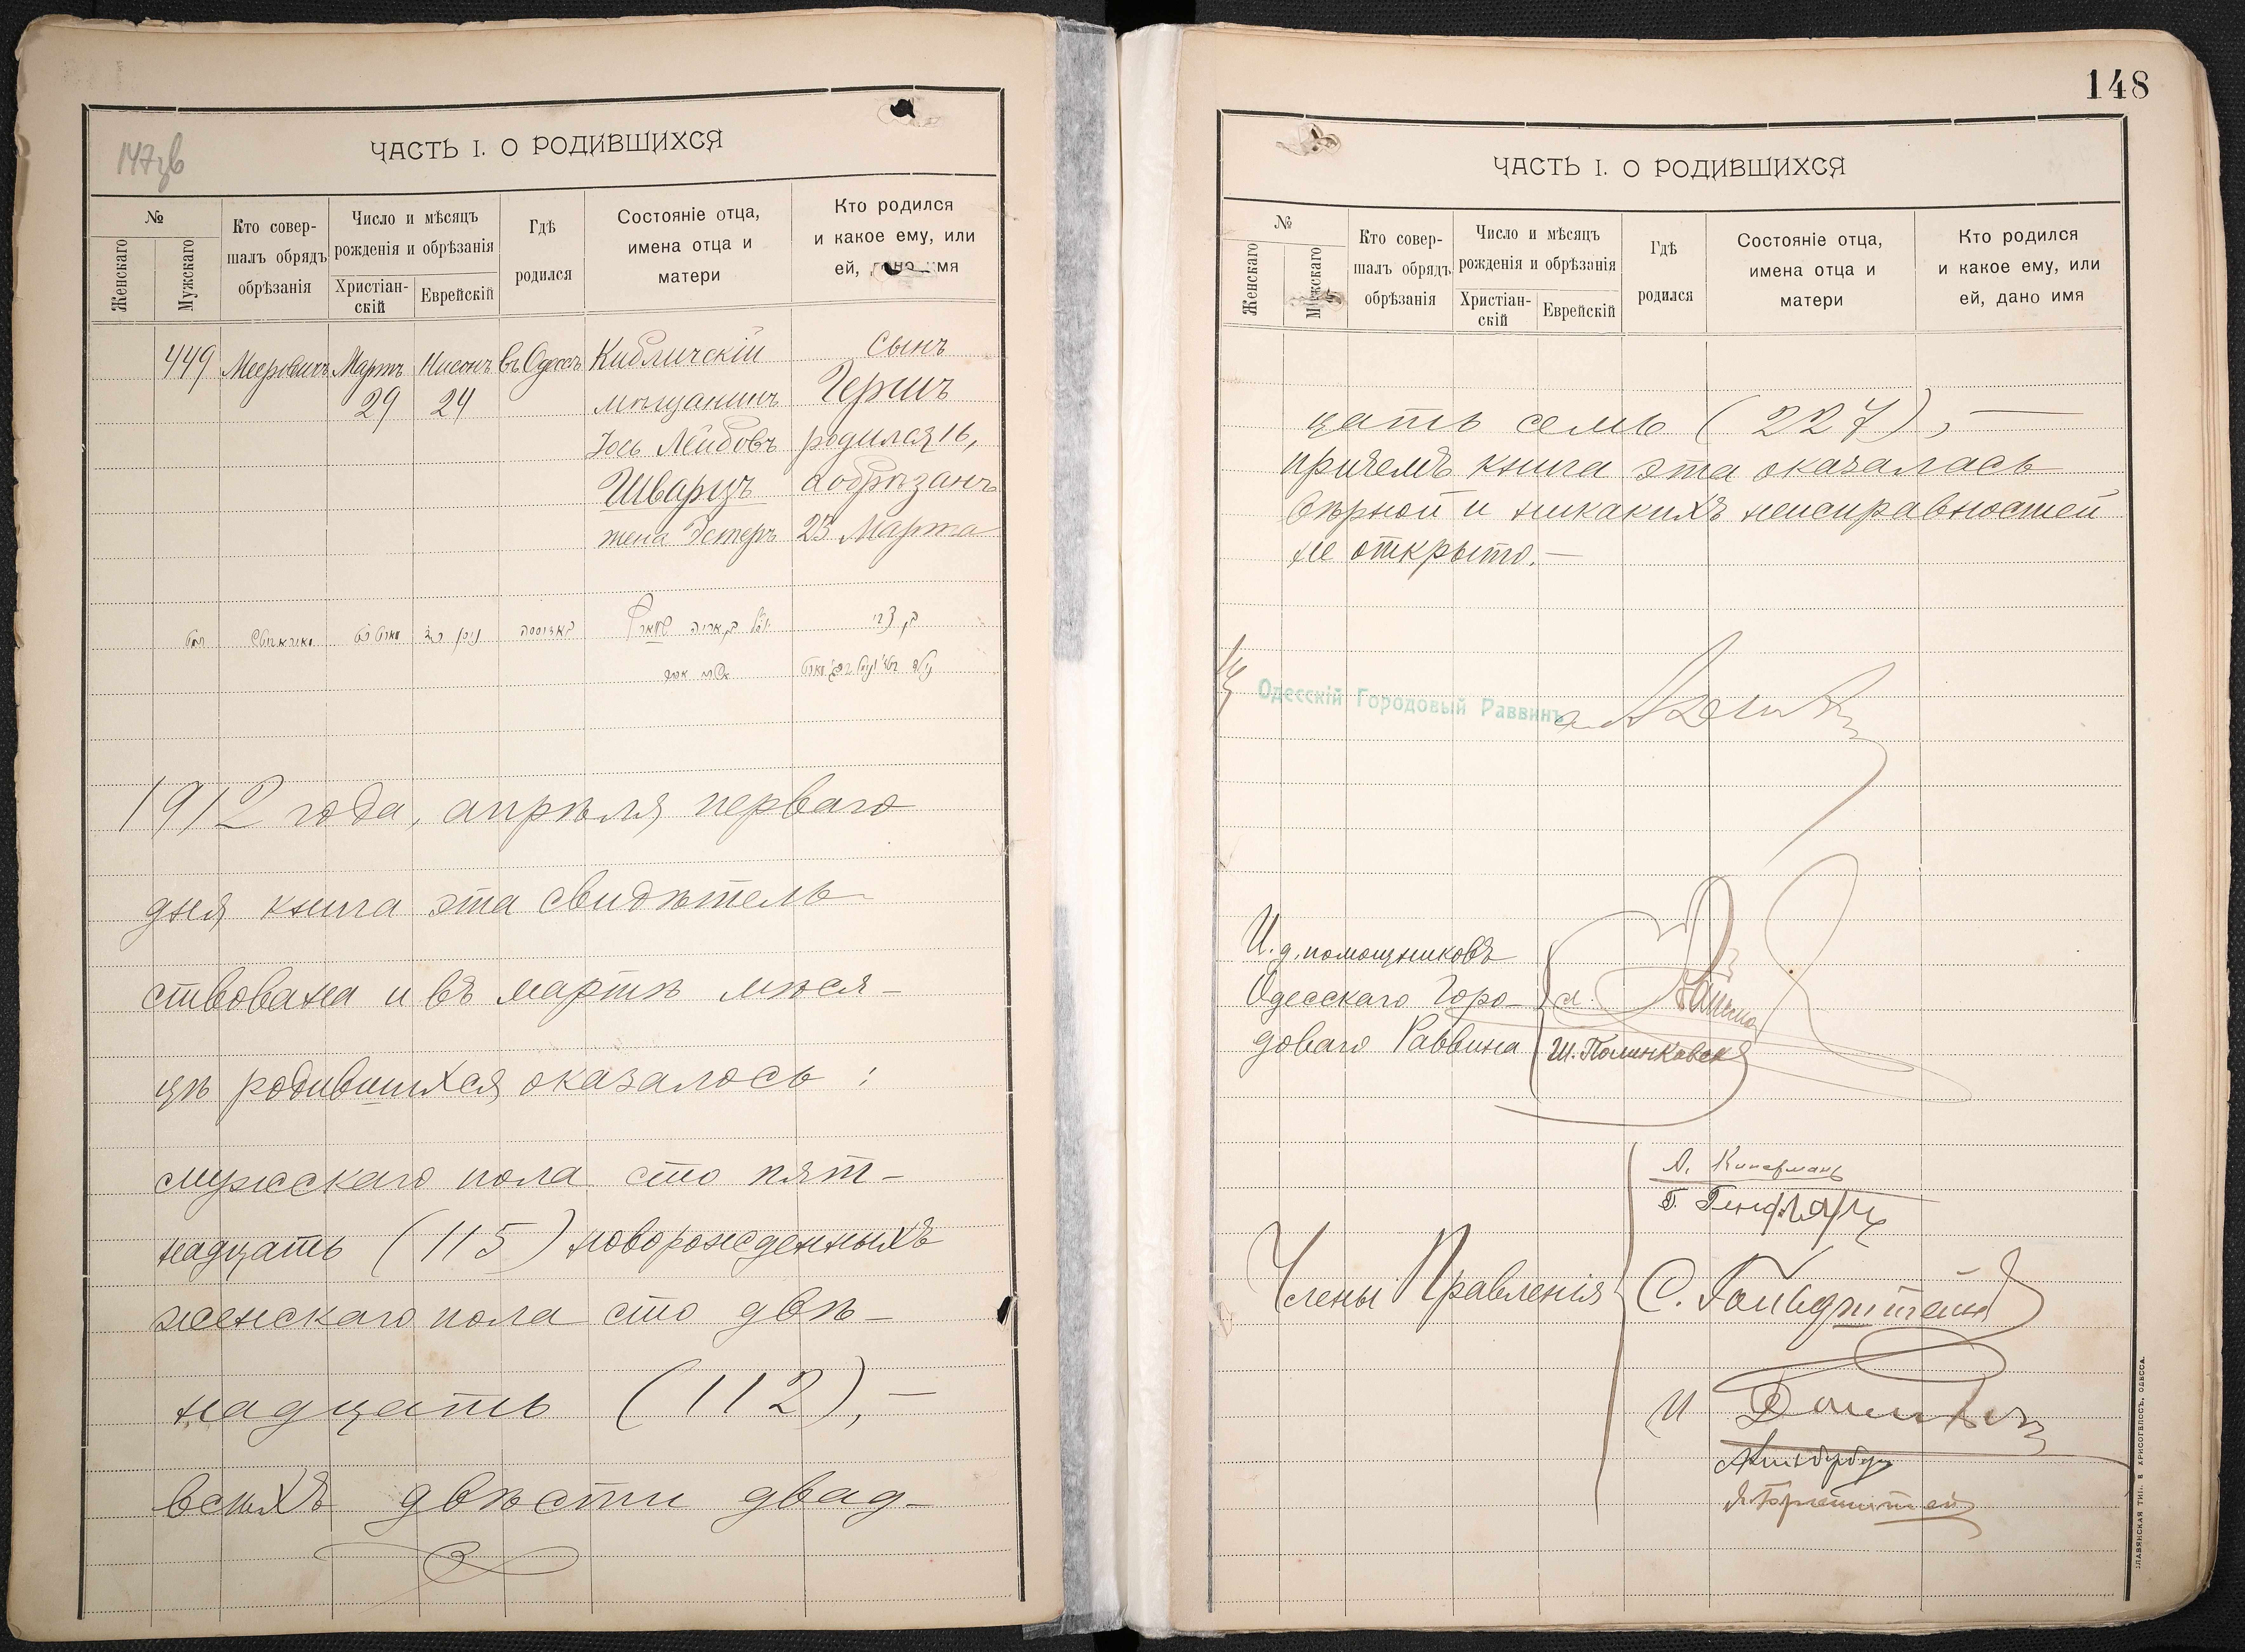 147зв
ЧАСТЬ I. О РОДИВШИХСЯ
№
Женскаго
Мужскаго
Кто совер-
шалъ обрядъ
обрѣзанія
Число и мѣсяцъ
рожденія и обрѣзанія
Христіан-
скій
Еврейскій
Гдѣ
родился
Состояніе отца,
имена отца и
матери
Кто родился
и какое ему, или
ей, дано имя
449 Мееровичъ Мартъ Нисонъ въ Одессѣ Кибличскій сынъ
29 24 мѣщанинъ Гершъ
Іось Лейбовъ родился 16,
Шварцъ а обрѣзанъ
жена Эстеръ 23 Марта
1912 года, апрѣля перваго
дня книга эта свидѣтель-
ствована и въ мартѣ мѣся-
цѣ родившихся оказалось:
мужескаго пола сто пят-
надцать (115) новорожденныхъ
женскаго пола сто двѣ-
надцать (112), —
всѣхъ двѣсти двад-
148
ЧАСТЬ I. О РОДИВШИХСЯ
№
Женскаго
Мужскаго
Кто совер-
шалъ обрядъ
обрѣзанія
Число и мѣсяцъ
рожденія и обрѣзанія
Христіан-
скій
Еврейскій
Гдѣ
родился
Состояніе отца,
имена отца и
матери
Кто родился
и какое ему, или
ей, дано имя
цать семь (227), —
причемъ книга эта оказалась
вѣрной и никакихъ неисправностей
не открыто. —
Одесскій Городовый Раввинъ
И. д. помощниковъ
Одесскаго Горо-
доваго Раввина
Члены Правленія
С. Гольдштейнъ
СЛАВЯНСКАЯ ТИП. Е. ХРИСОГЕЛОСЪ, ОДЕССА.